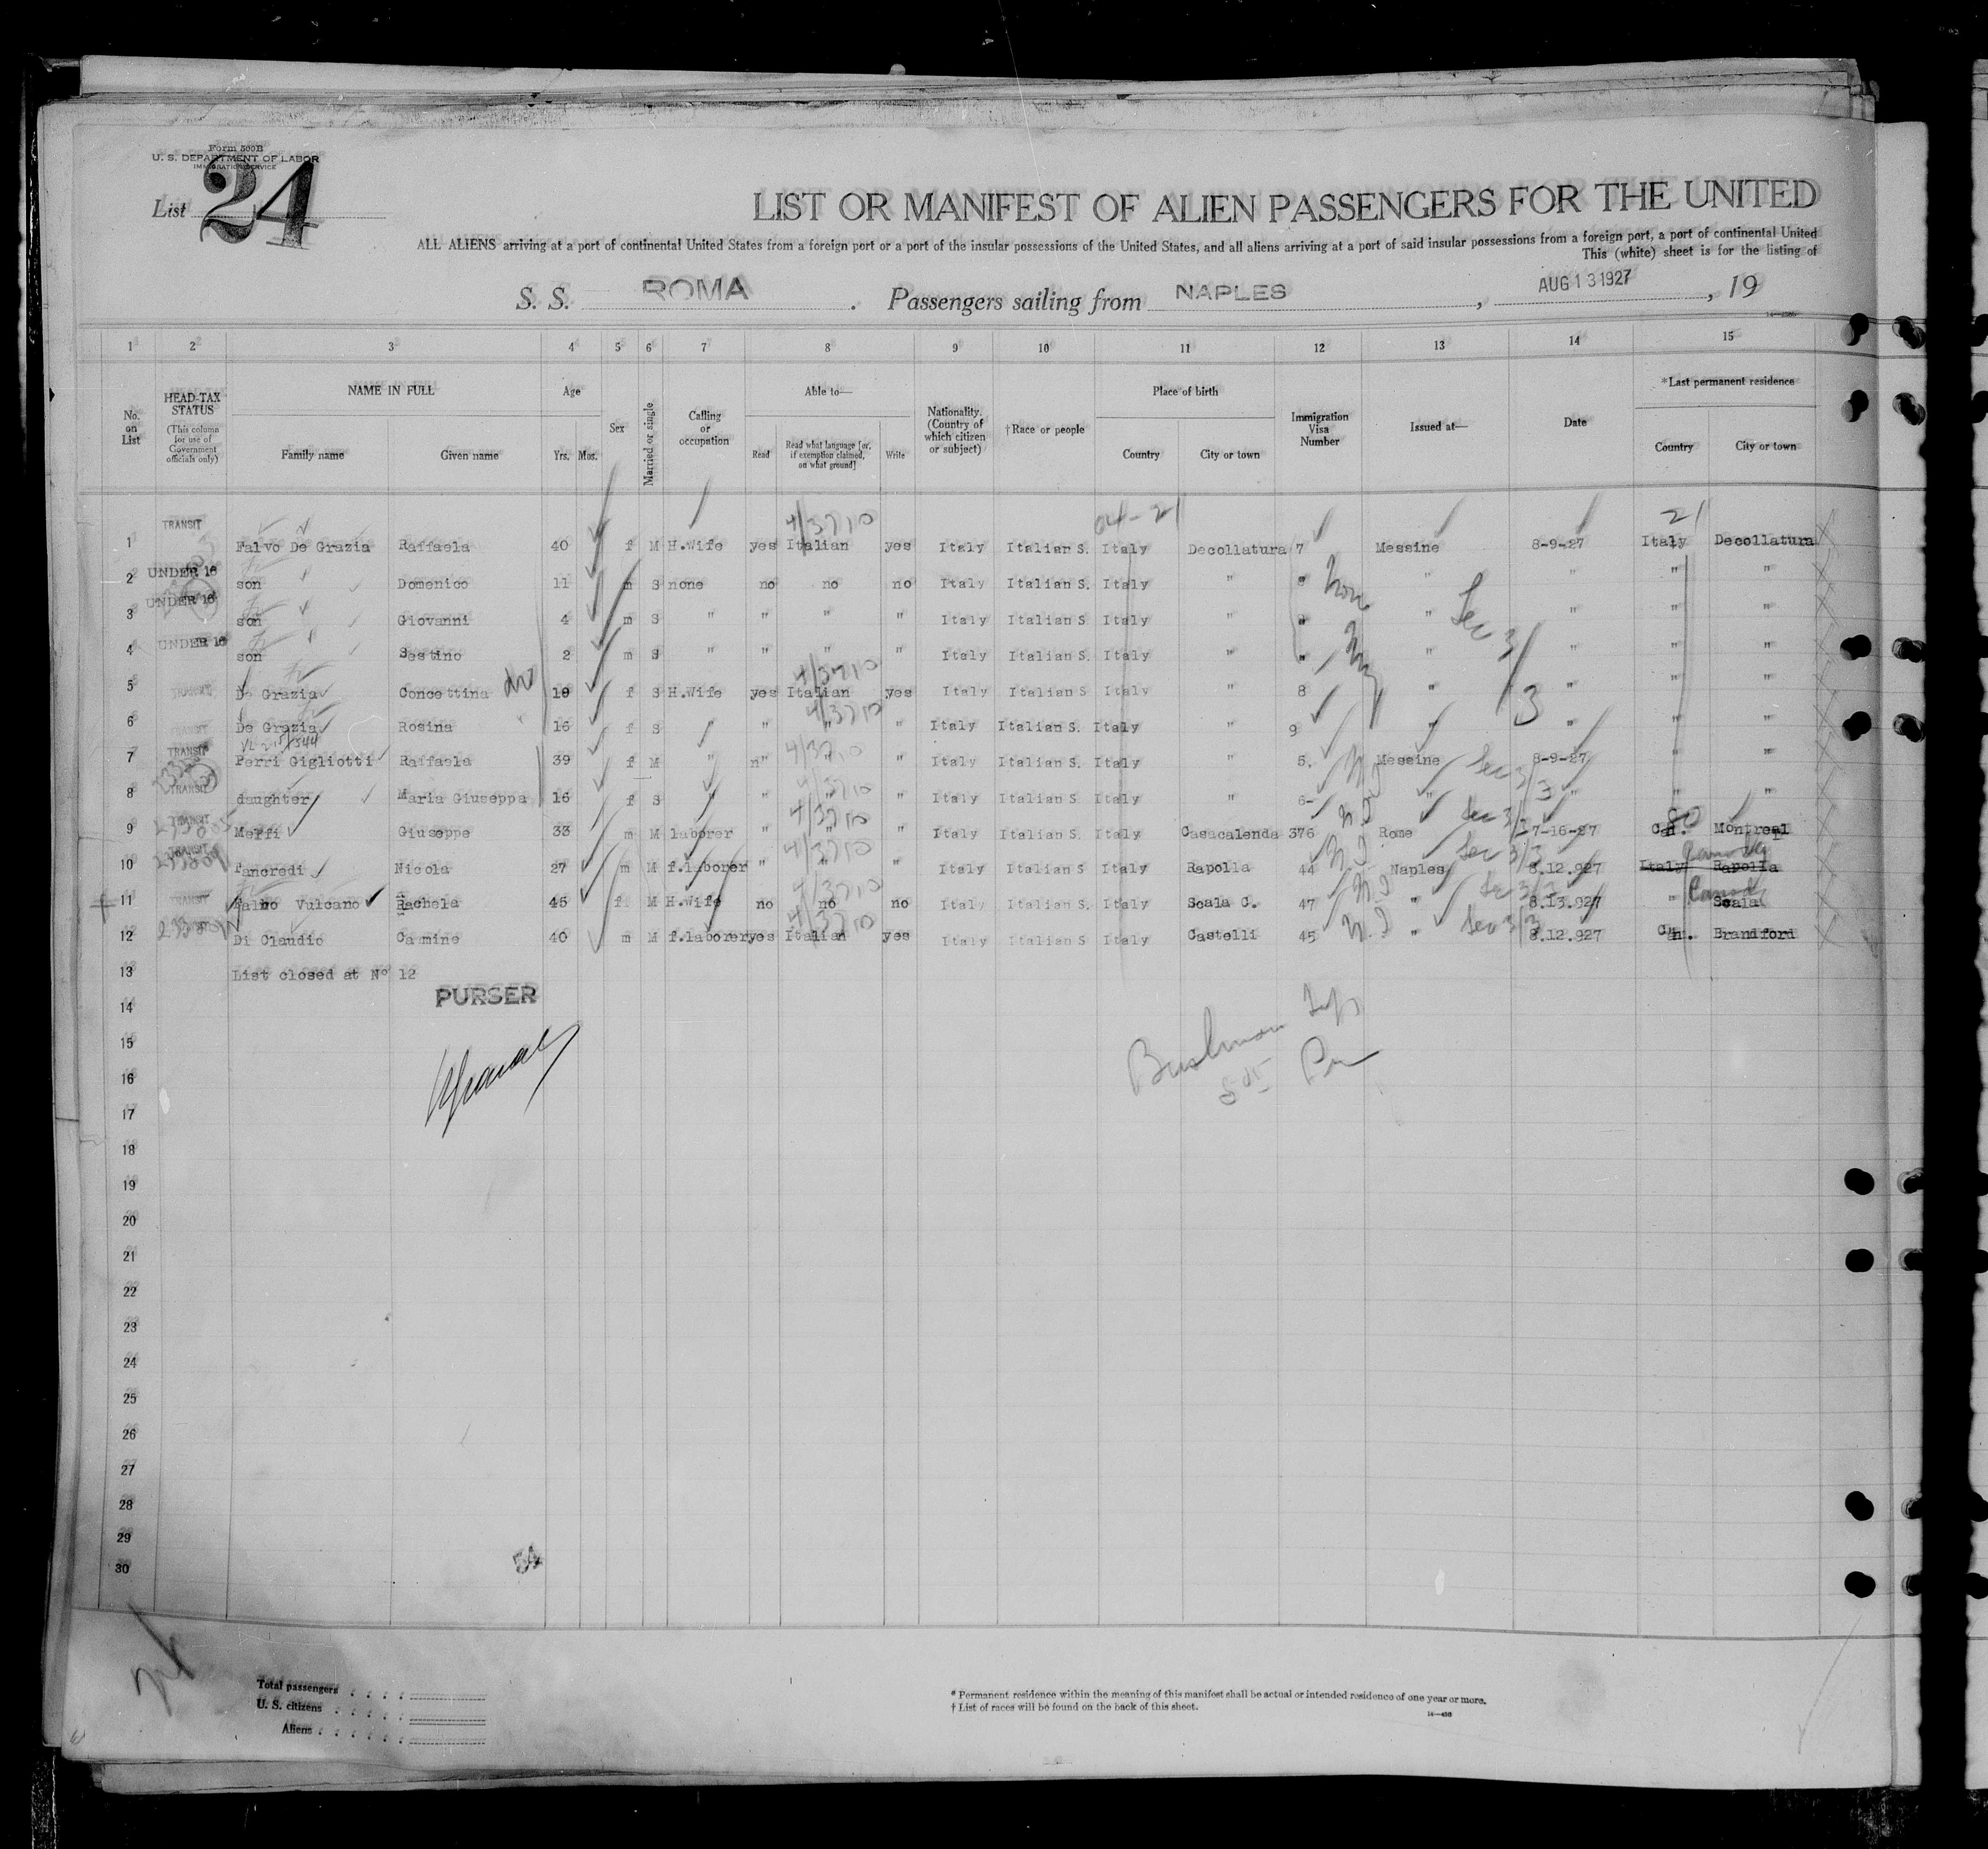 Form 500B
U. S. DEPARTMENT OF LABOR
IMMIGRATION SERVICE
List 24
LIST OR MANIFEST OF ALIEN PASSENGERS FOR THE UNITED
ALL ALIENS arriving at a port of continental United States from a foreign port or a port of the insular possessions of the United States, and all aliens arriving at a port of said insular possessions from a foreign port, a port of continental United
This (white) sheet is for the listing of
S. S. ROMA . Passengers sailing from NAPLES , AUG 13 1927 , 19
1 2 3 4 5 6 7 8 9 10 11 12 13 14 15
No. on List
HEAD-TAX STATUS (This column for use of Government officials only)
NAME IN FULL Family name Given name
Age Yrs. Mos.
Sex
Married or single
Calling or occupation
Able to— Read Read what language [or, if exemption claimed, on what ground] Write
Nationality. (Country of which citizen or subject)
†Race or people
Place of birth Country City or town
Immigration Visa Number
Issued at—
Date
*Last permanent residence Country City or town
4/3710 04-21 21
1 TRANSIT Falvo De Grazia Raffaela 40 f M H.Wife yes Italian yes Italy Italian S. Italy Decollatura 7 Messine 8-9-27 Italy Decollatura
2 UNDER 16 son Domenico 11 m S none no no no Italy Italian S. Italy " " " " "
3 UNDER 16 son Giovanni 4 m S " " " " Italy Italian S. Italy " " " " " Sec 3
4 UNDER 16 son Sestino 2 m S " " " " Italy Italian S. Italy " " " " " "
4/3710
5 TRANSIT De Grazia Concettina f S H.Wife yes Italian yes Italy Italian S Italy " 8 " " " "
4/3710 3
6 TRANSIT De Grazia Rosina 16 f S " " " Italy Italian S. Italy " 9 " " " "
4/3710
7 TRANSIT Perri Gigliotti Raffaela 39 f M " " " Italy Italian S. Italy " 5. Messine 8-9-27 " "
4/3710 Sec 3/3
8 TRANSIT daughter Maria Giuseppa 16 f S " " " " Italy Italian S. Italy " 6- " " " "
4/3710 Sec 3/3 80
9 TRANSIT Meffi Giuseppe 33 m M laborer " " " Italy Italian S. Italy Casacalenda 376 Rome 7-16-27 Can. Montreal
4/3710 Sec 3/3 Canada
10 TRANSIT Tancredi Nicola 27 m M f.laborer " " " Italy Italian S. Italy Rapolla 44 Naples 8.12.927 Italy Rapolla
4/3710 Sec 3/3 Canada
11 TRANSIT Vulcano Rachela 45 f M H.Wife no no no Italy Italian S. Italy Scala C. 47 " 8.13.927 " Scala
4/3710 Sec 3/3
12 Di Claudio Camine 40 m M f.laborer yes Italian yes Italy Italian S Italy Castelli 45 " 8.12.927 Can. Brandford
13 List closed at N° 12
PURSER
14
15
16
17
18
19
20
21
22
23
24
25
26
27
28
29
30
54
Total passengers
U. S. citizens
Aliens
* Permanent residence within the meaning of this manifest shall be actual or intended residence of one year or more.
† List of races will be found on the back of this sheet.